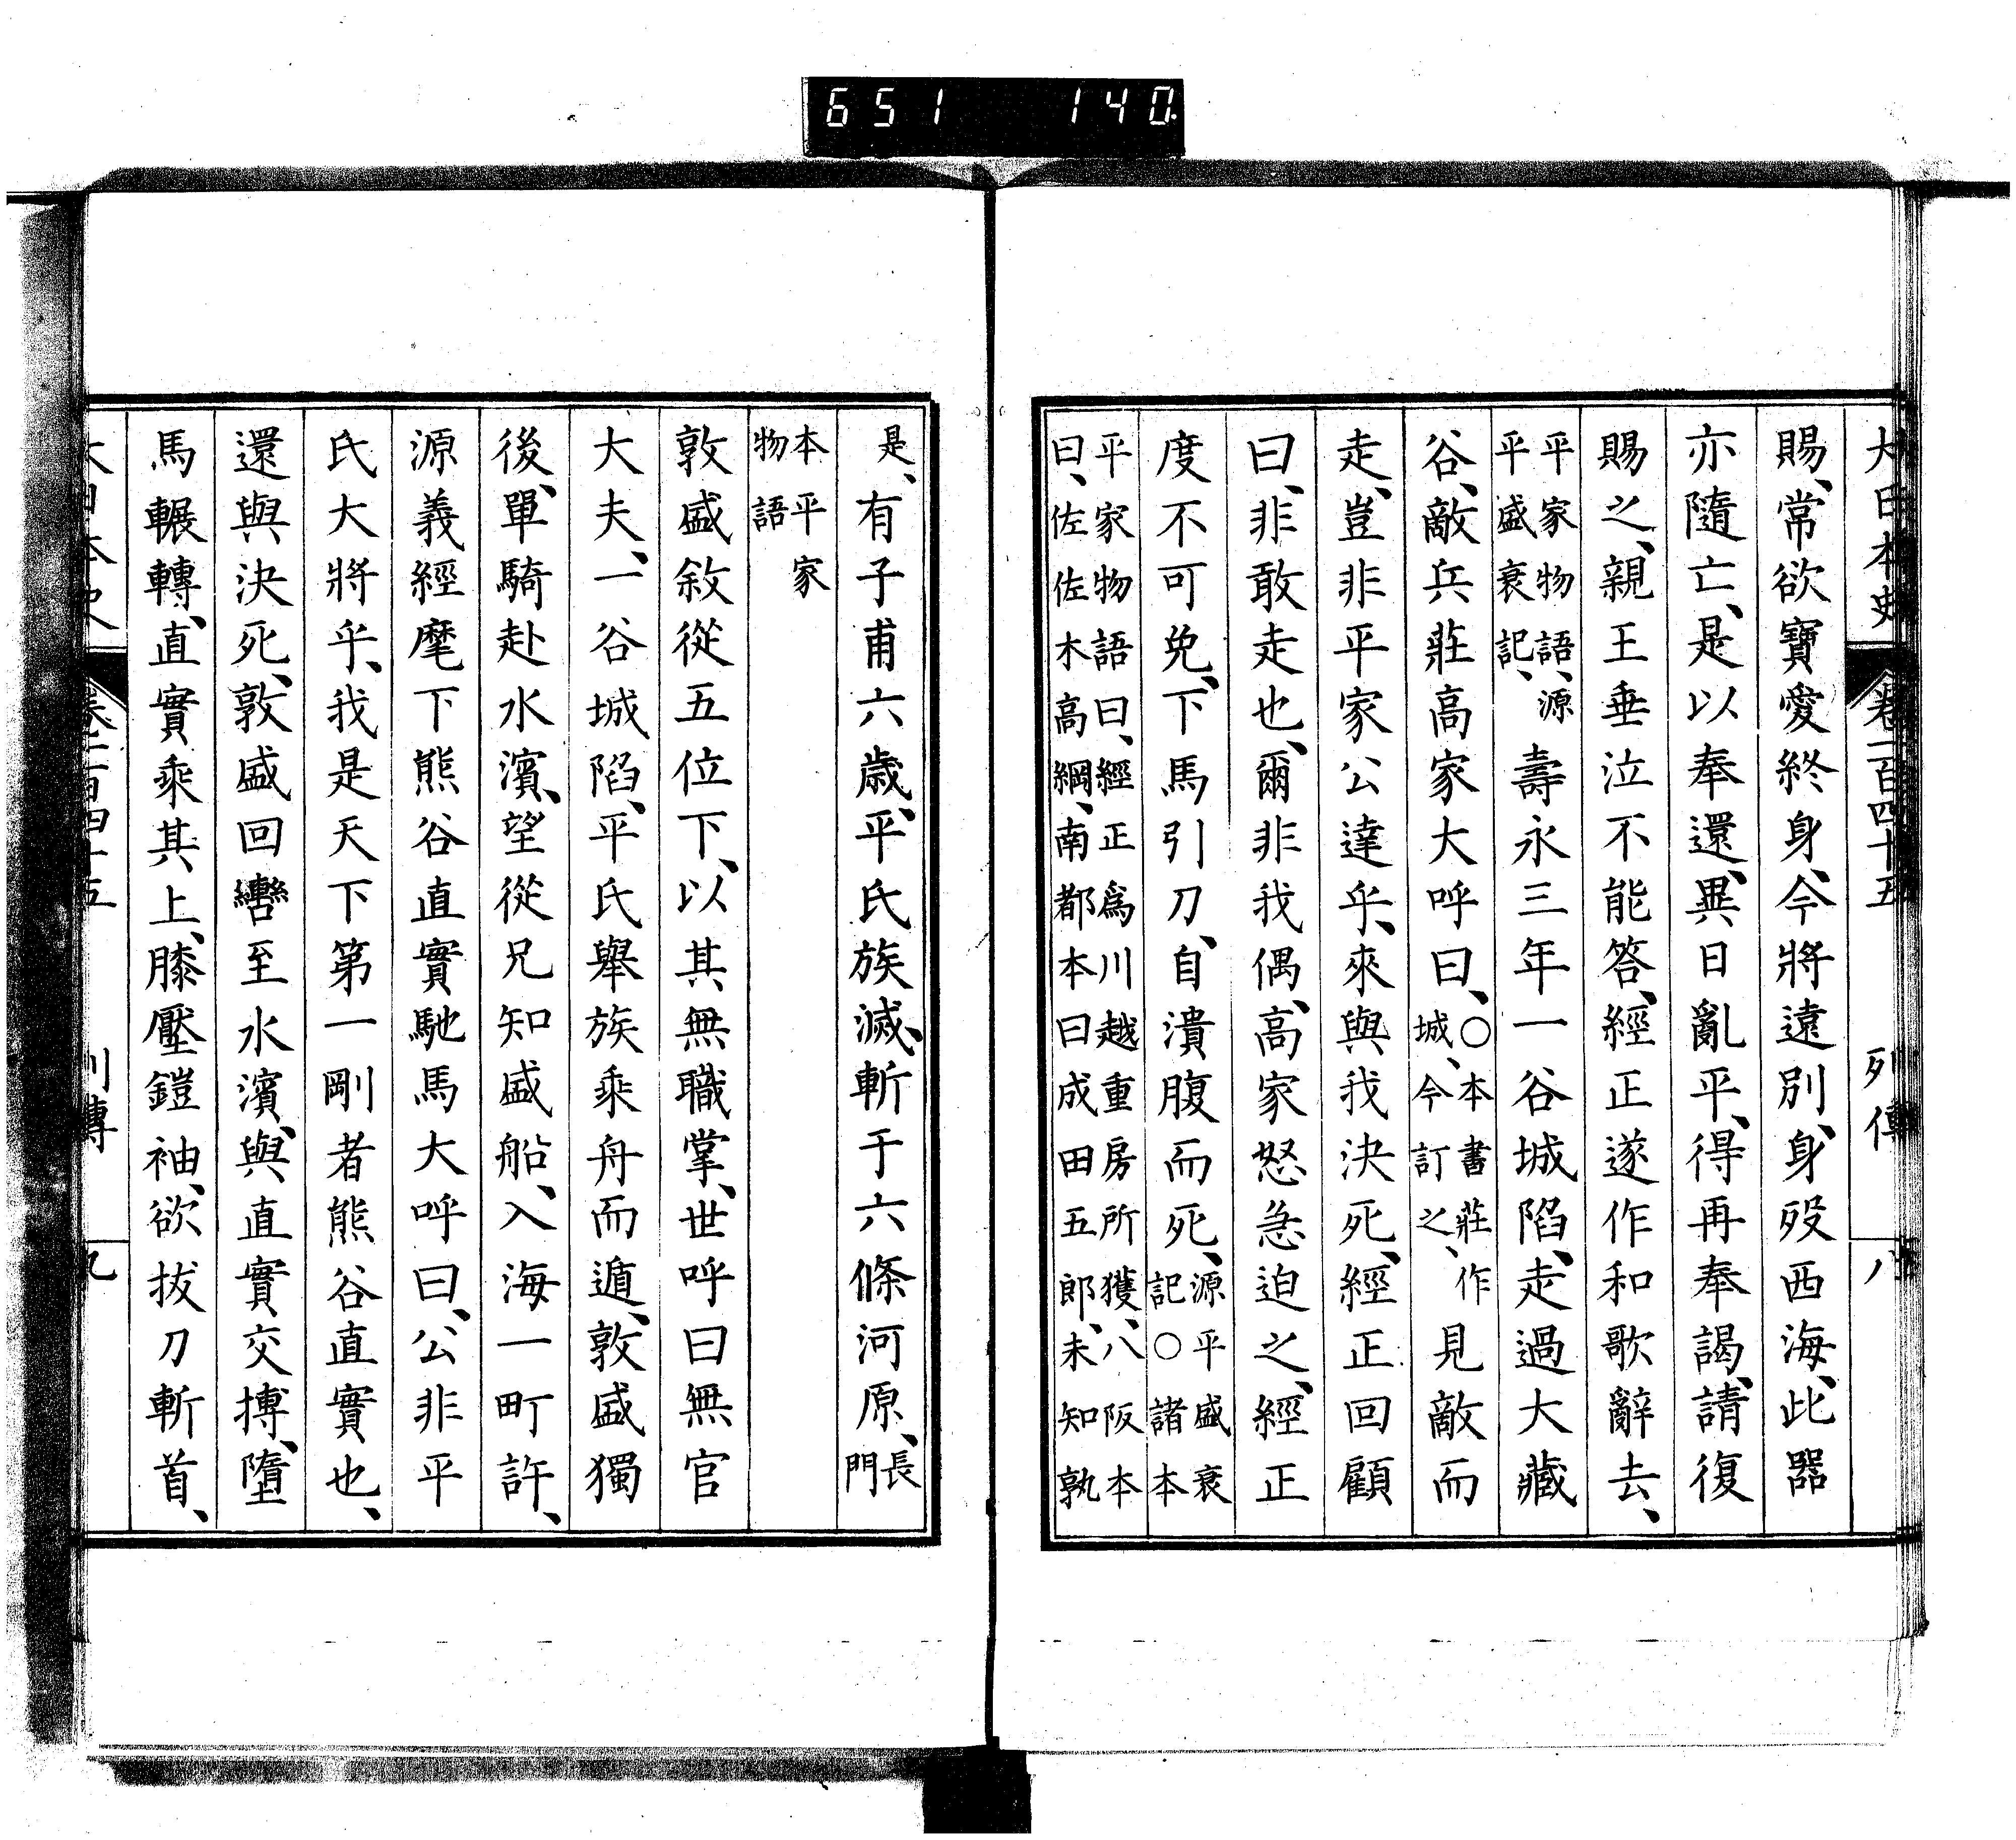 651 140
大日本史 卷一百四十五 列傳 八
賜、常欲寶愛終身、今將遠別、身歿西海、此器
亦隨亡、是以奉還、異日亂平、得再奉謁、請復
賜之、親王垂泣不能答、經正遂作和歌辭去、
平家物語、源平盛衰記、壽永三年一谷城陷、走過大藏
谷、敵兵莊高家大呼曰、○本書莊、作城、今訂之、見敵而
走、豈非平家公達乎、來與我決死、經正回顧
曰、非敢走也、爾非我偶、高家怒急迫之、經正
度不可免、下馬引刀、自潰腹而死、源平盛衰記○諸本
平家物語曰、經正爲川越重房所獲、八阪本曰、佐佐木高綱、南都本曰成田五郎、未知孰
是、有子甫六歲、平氏族滅、斬于六條河原、長門
本平家物語
敦盛敘從五位下、以其無職掌、世呼曰無官
大夫、一谷城陷、平氏舉族乘舟而遁、敦盛獨
後、單騎赴水濱、望從兄知盛船、入海一町許、
源義經麾下熊谷直實馳馬大呼曰、公非平
氏大將乎、我是天下第一剛者熊谷直實也、
還與決死、敦盛回轡至水濱、與直實交搏、墮
馬輾轉、直實乘其上、膝壓鎧袖、欲拔刀斬首、
大日本史 卷一百四十五 列傳 九